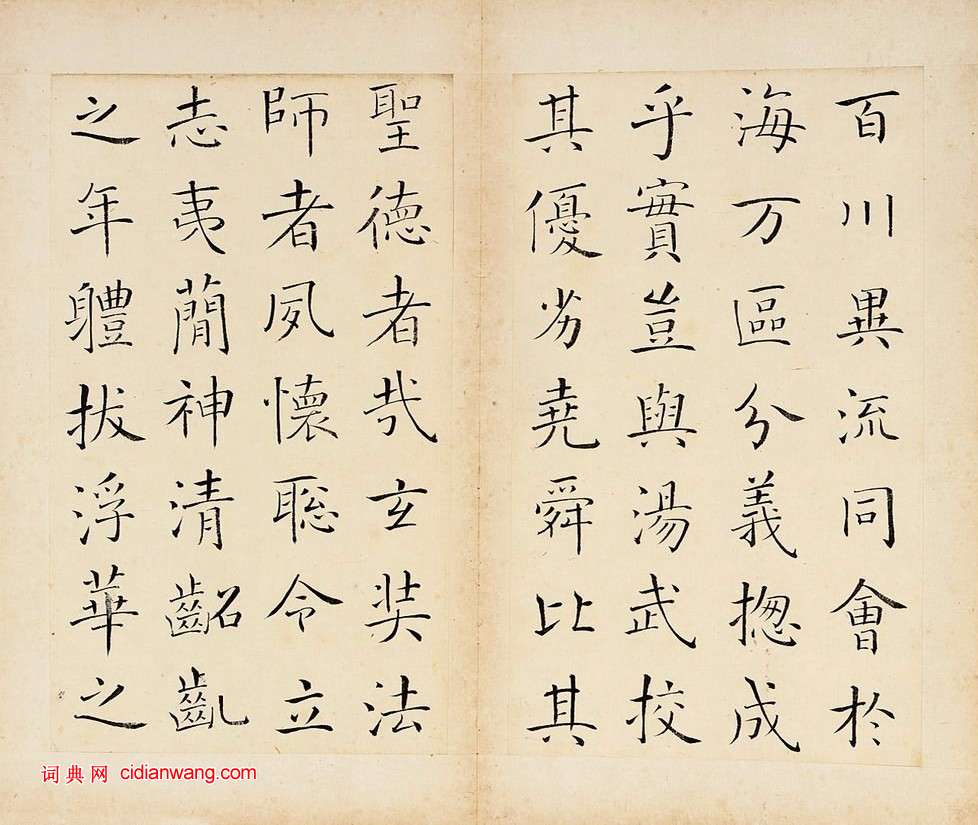 百川異流同會於
海万區分義揔成
乎實豈與湯武挍
其優劣堯舜比其
聖德者哉玄奘法
師者夙懷聡令立
志夷簡神清齠齓
之年軆拔浮華之
词典网 cidianwang.com